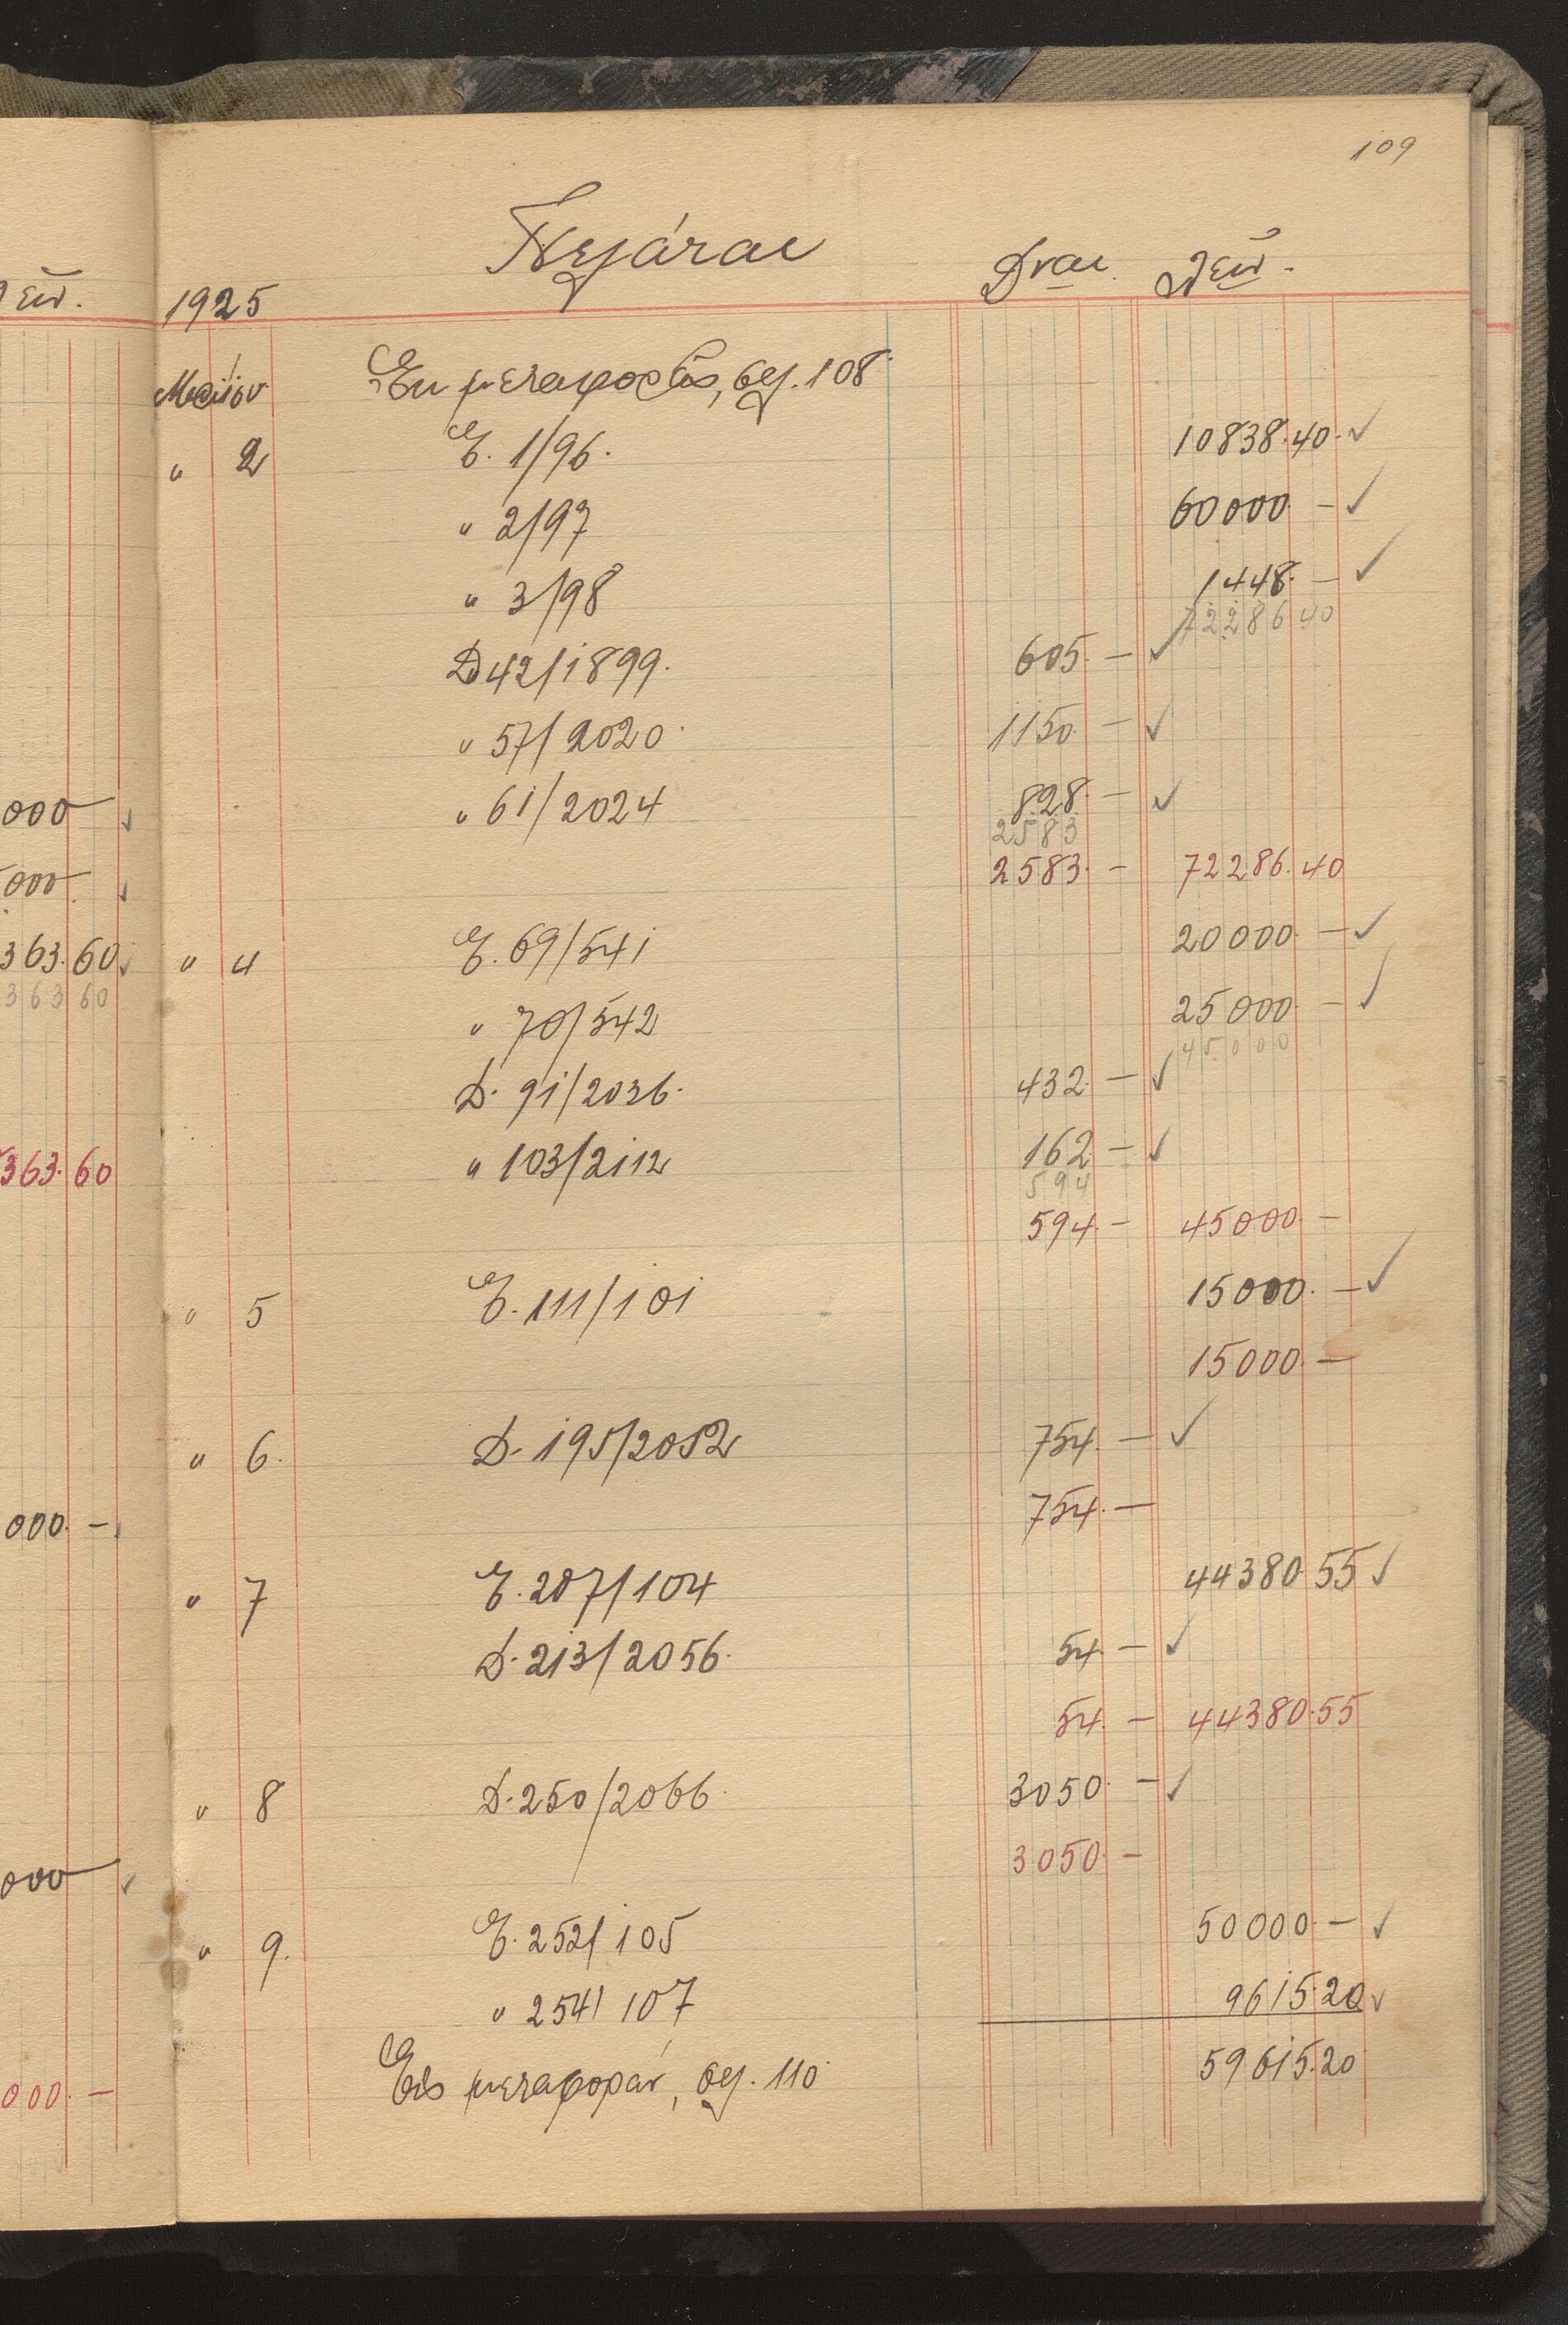 109
Πελάται
Δναι. Λεῦ.
1925
Μαΐου Ἐκ μεταφορᾶς, σελ. 108
" 2 Ε. 1/96. 10838.40.
" 2/97 60000 —
" 3/98 1448. —
72286 40
Δ 42/1899. 605. —
" 57/2020. 1150 —
" 61/2024 828. —
2583
2583. — 72286.40
" 4 Ε. 69/541 20000 —
" 70/542 25000 —
45.000
Δ. 91/2036. 432. —
" 103/2112 162 —
594
594. — 45000. —
" 5 Ε. 111/101 15000. —
15000. —
" 6. Δ. 195/2052 754. —
754. —
" 7 Ε. 207/104 44380.55
Δ. 213/2056. 54. —
54. — 44380.55
" 8 Δ. 250/2066. 3050. —
3050. —
" 9. Ε. 252/105 50000. —
" 254/107 9615.20
Εἰς μεταφοράν, σελ. 110 59615.20
Λεῦ.
000
000
363.60
363 60
363.60
000. —
000
000. —